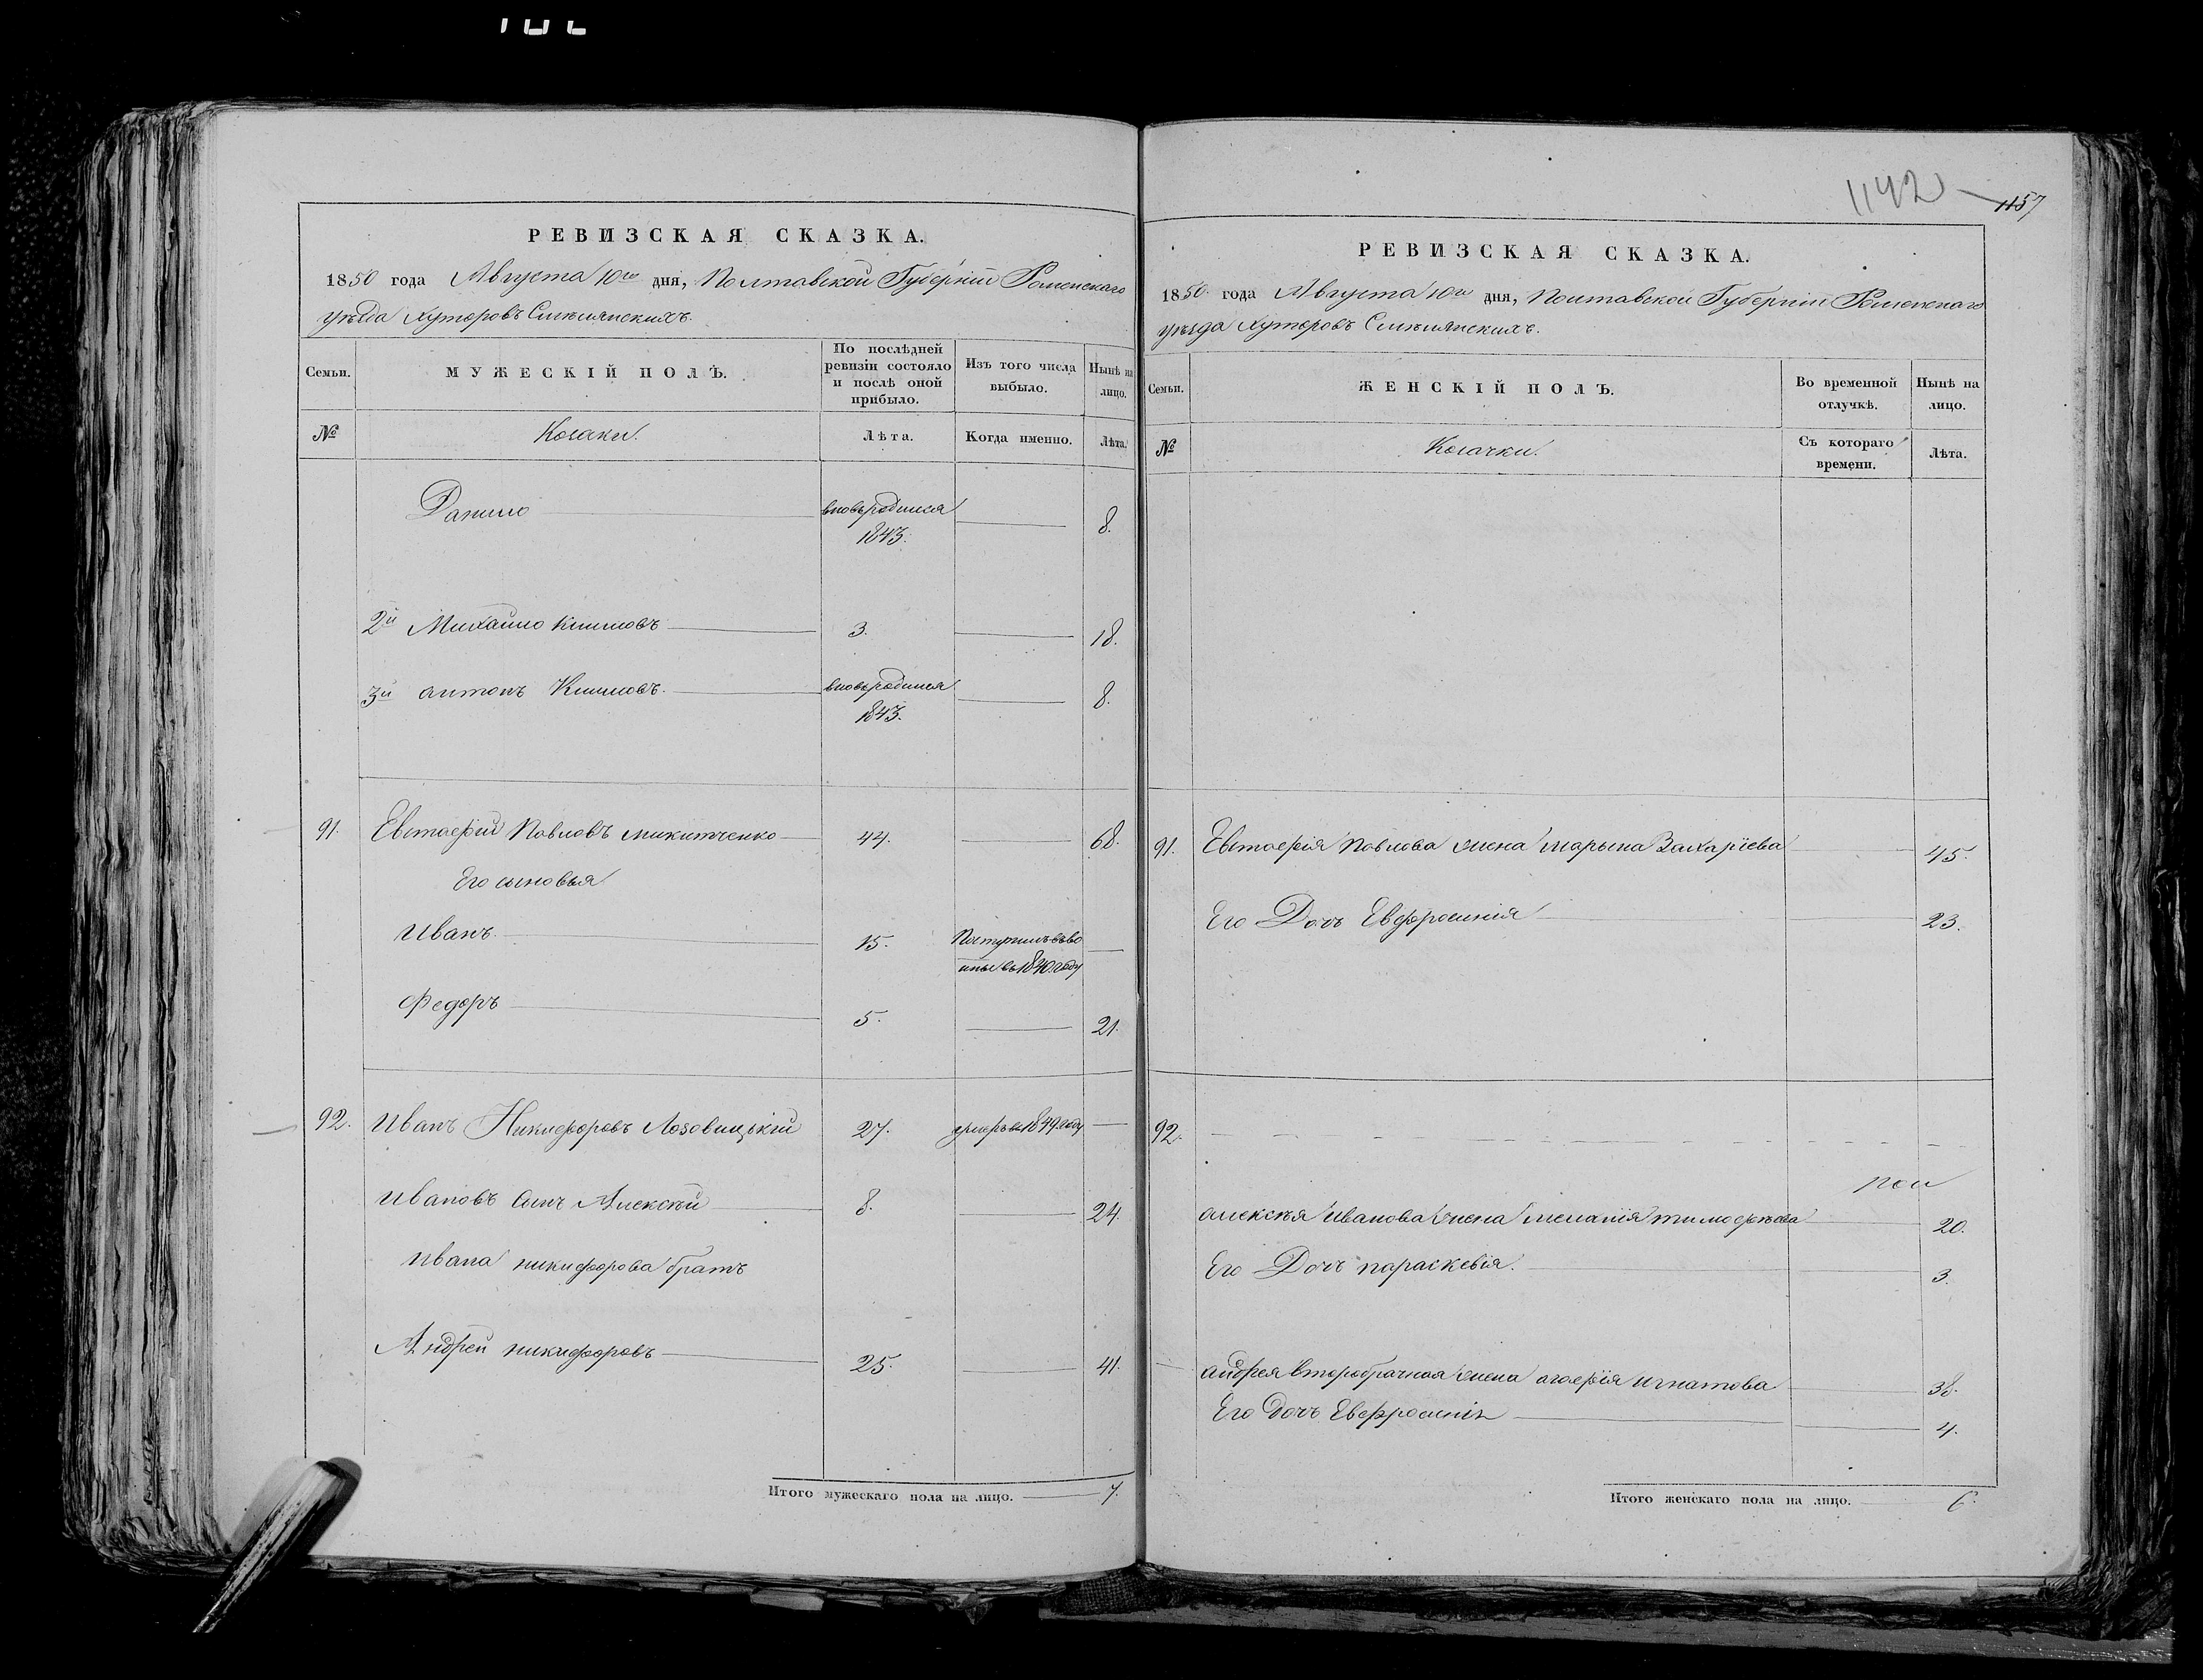 1142
1157
РЕВИЗСКАЯ СКАЗКА.
1850 года Августа 10го дня, Полтавской Губерніи Роменскаго
уѣзда Хуторовъ Смѣлянскихъ.
Семьи.
МУЖЕСКІЙ ПОЛЪ.
По послѣдней ревизіи состояло и послѣ оной прибыло.
Изъ того числа выбыло.
Нынѣ на лицо.
№
Козаки.
Лѣта.
Когда именно.
Лѣта.
Данило вновьродился 1843. 8.
2й Михайло Климовъ 3. 18.
3й антонъ Климовъ. вновьродился 1843. 8.
91. Евстафій Повловъ микитченко 44. 68.
Его сыновья
Иванъ. 15. Поступилъ въ 1840. году
Федоръ 5. 21.
92. Иванъ Никифоровъ Лозовицькій 27. умеръ въ 1849. году
Ивановъ сынъ Алексѣй 8. 24.
Ивана никифорова братъ
Андрей никифоровъ 25. 41.
Итого мужескаго пола на лицо. 7.
РЕВИЗСКАЯ СКАЗКА.
1850. года Августа 10го дня, Полтавской Губерніи Роменскаго
уѣзда Хуторовъ Смѣлянскихъ.
Семьи.
ЖЕНСКІЙ ПОЛЪ.
Во временной отлучкѣ.
Нынѣ на лицо.
№
Козачки.
Съ котораго времени.
Лѣта.
91. Евстафія Повлова жена марына Захаріева 45.
Его Дочъ Евфросинія 23.
92.
алексѣя Иванова жена меланія тимофѣева 20.
Его Дочъ параскевія. 3.
андрея второбрачная жена агафія игнатова 38.
Его Дочъ Евфросинія 4.
Итого женскаго пола на лицо. 6.